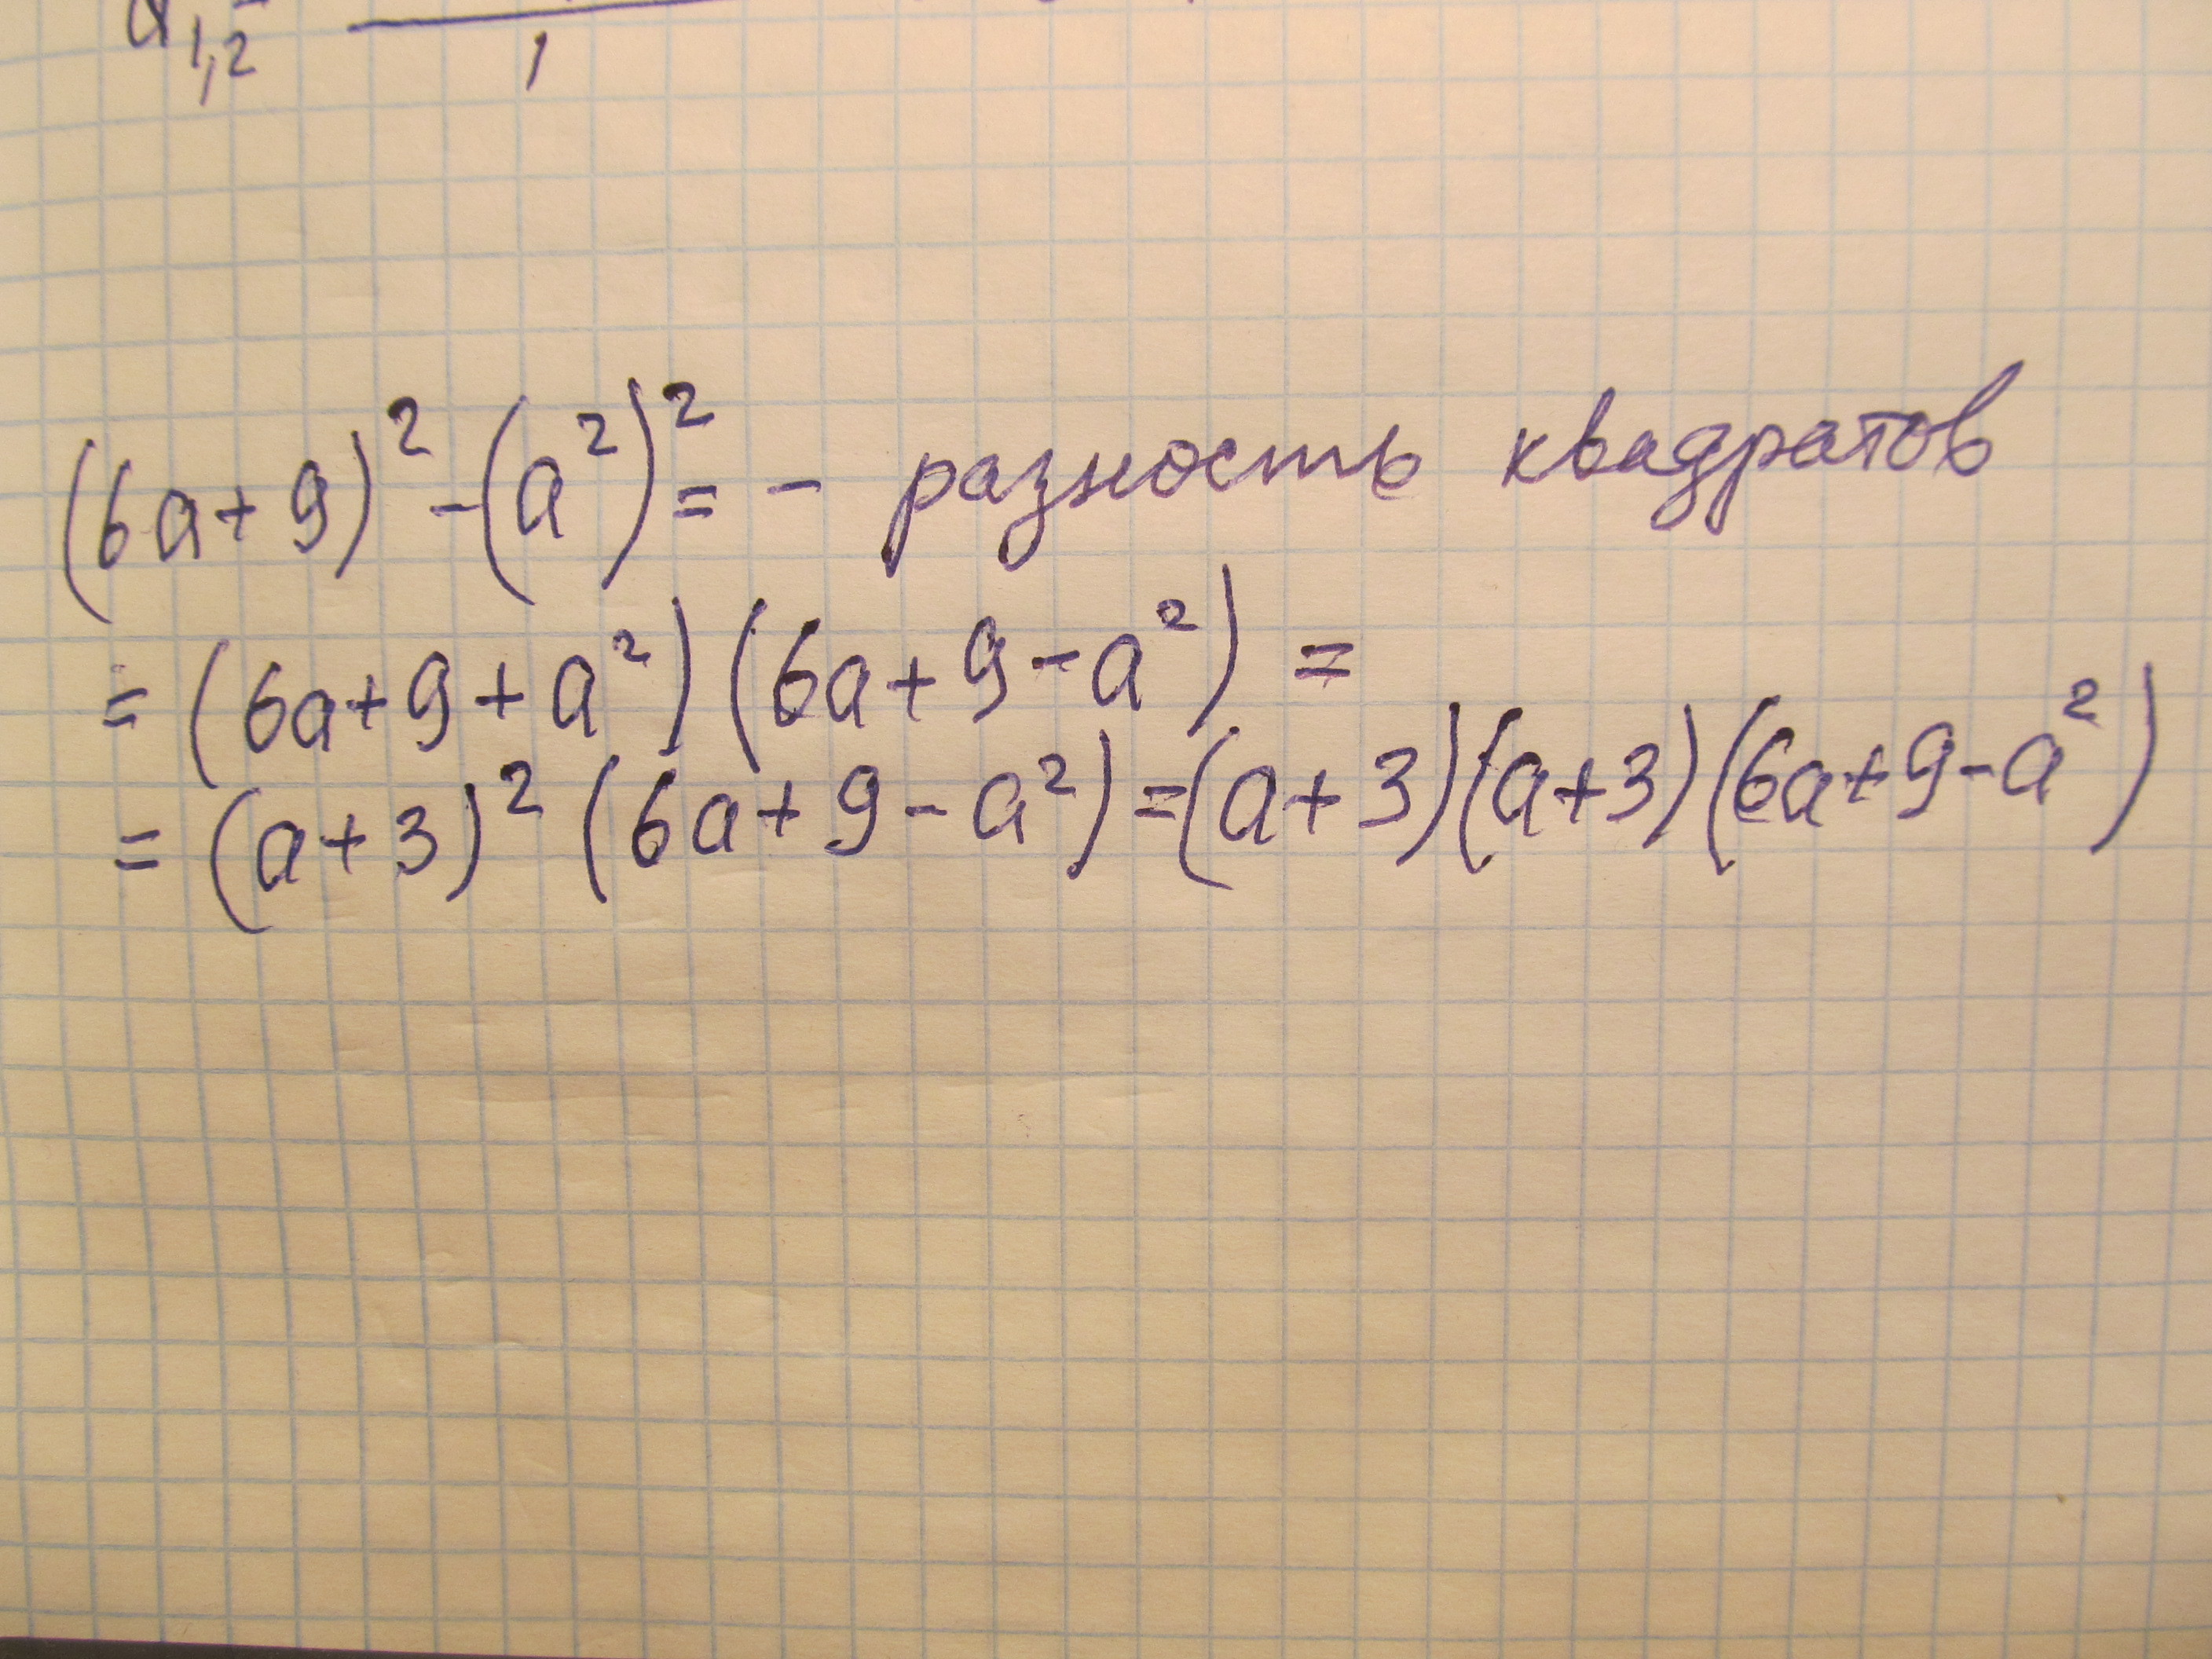 a₁,₂
1
(6a+9)² -(a²)² = - разность квадратов
= (6a+9+a²)(6a+9-a²) =
= (a+3)² (6a+9-a²) = (a+3)(a+3)(6a+9-a²)